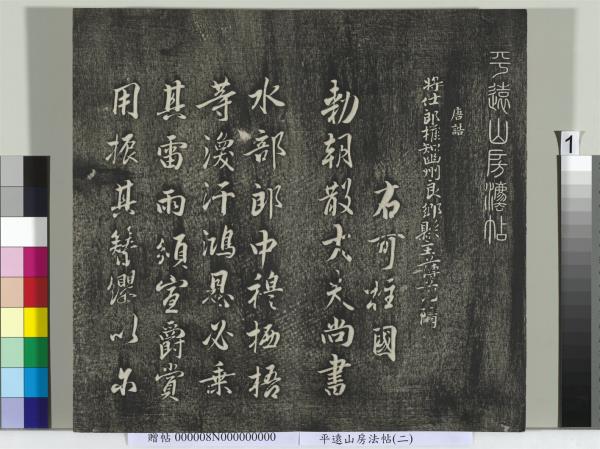 平遠山房法帖
唐誥
將仕郎權知幽州良鄉縣主簿
右可柱國
勑朝散大夫尚書
水部郎中穆栖梧
等渙汗鴻恩必乘
其雷雨須宣爵賞
用振其簪纓以尔
1
贈帖 000008N000000000 平遠山房法帖(二)